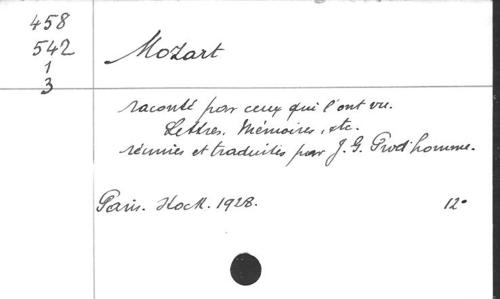 458
542
1
3
Mozart
raconté par ceux qui l'ont vu.
Lettres, Mémoires, etc.
réunies et traduites par J. G. Prod'homme.
Paris. Stock. 1928. 12°